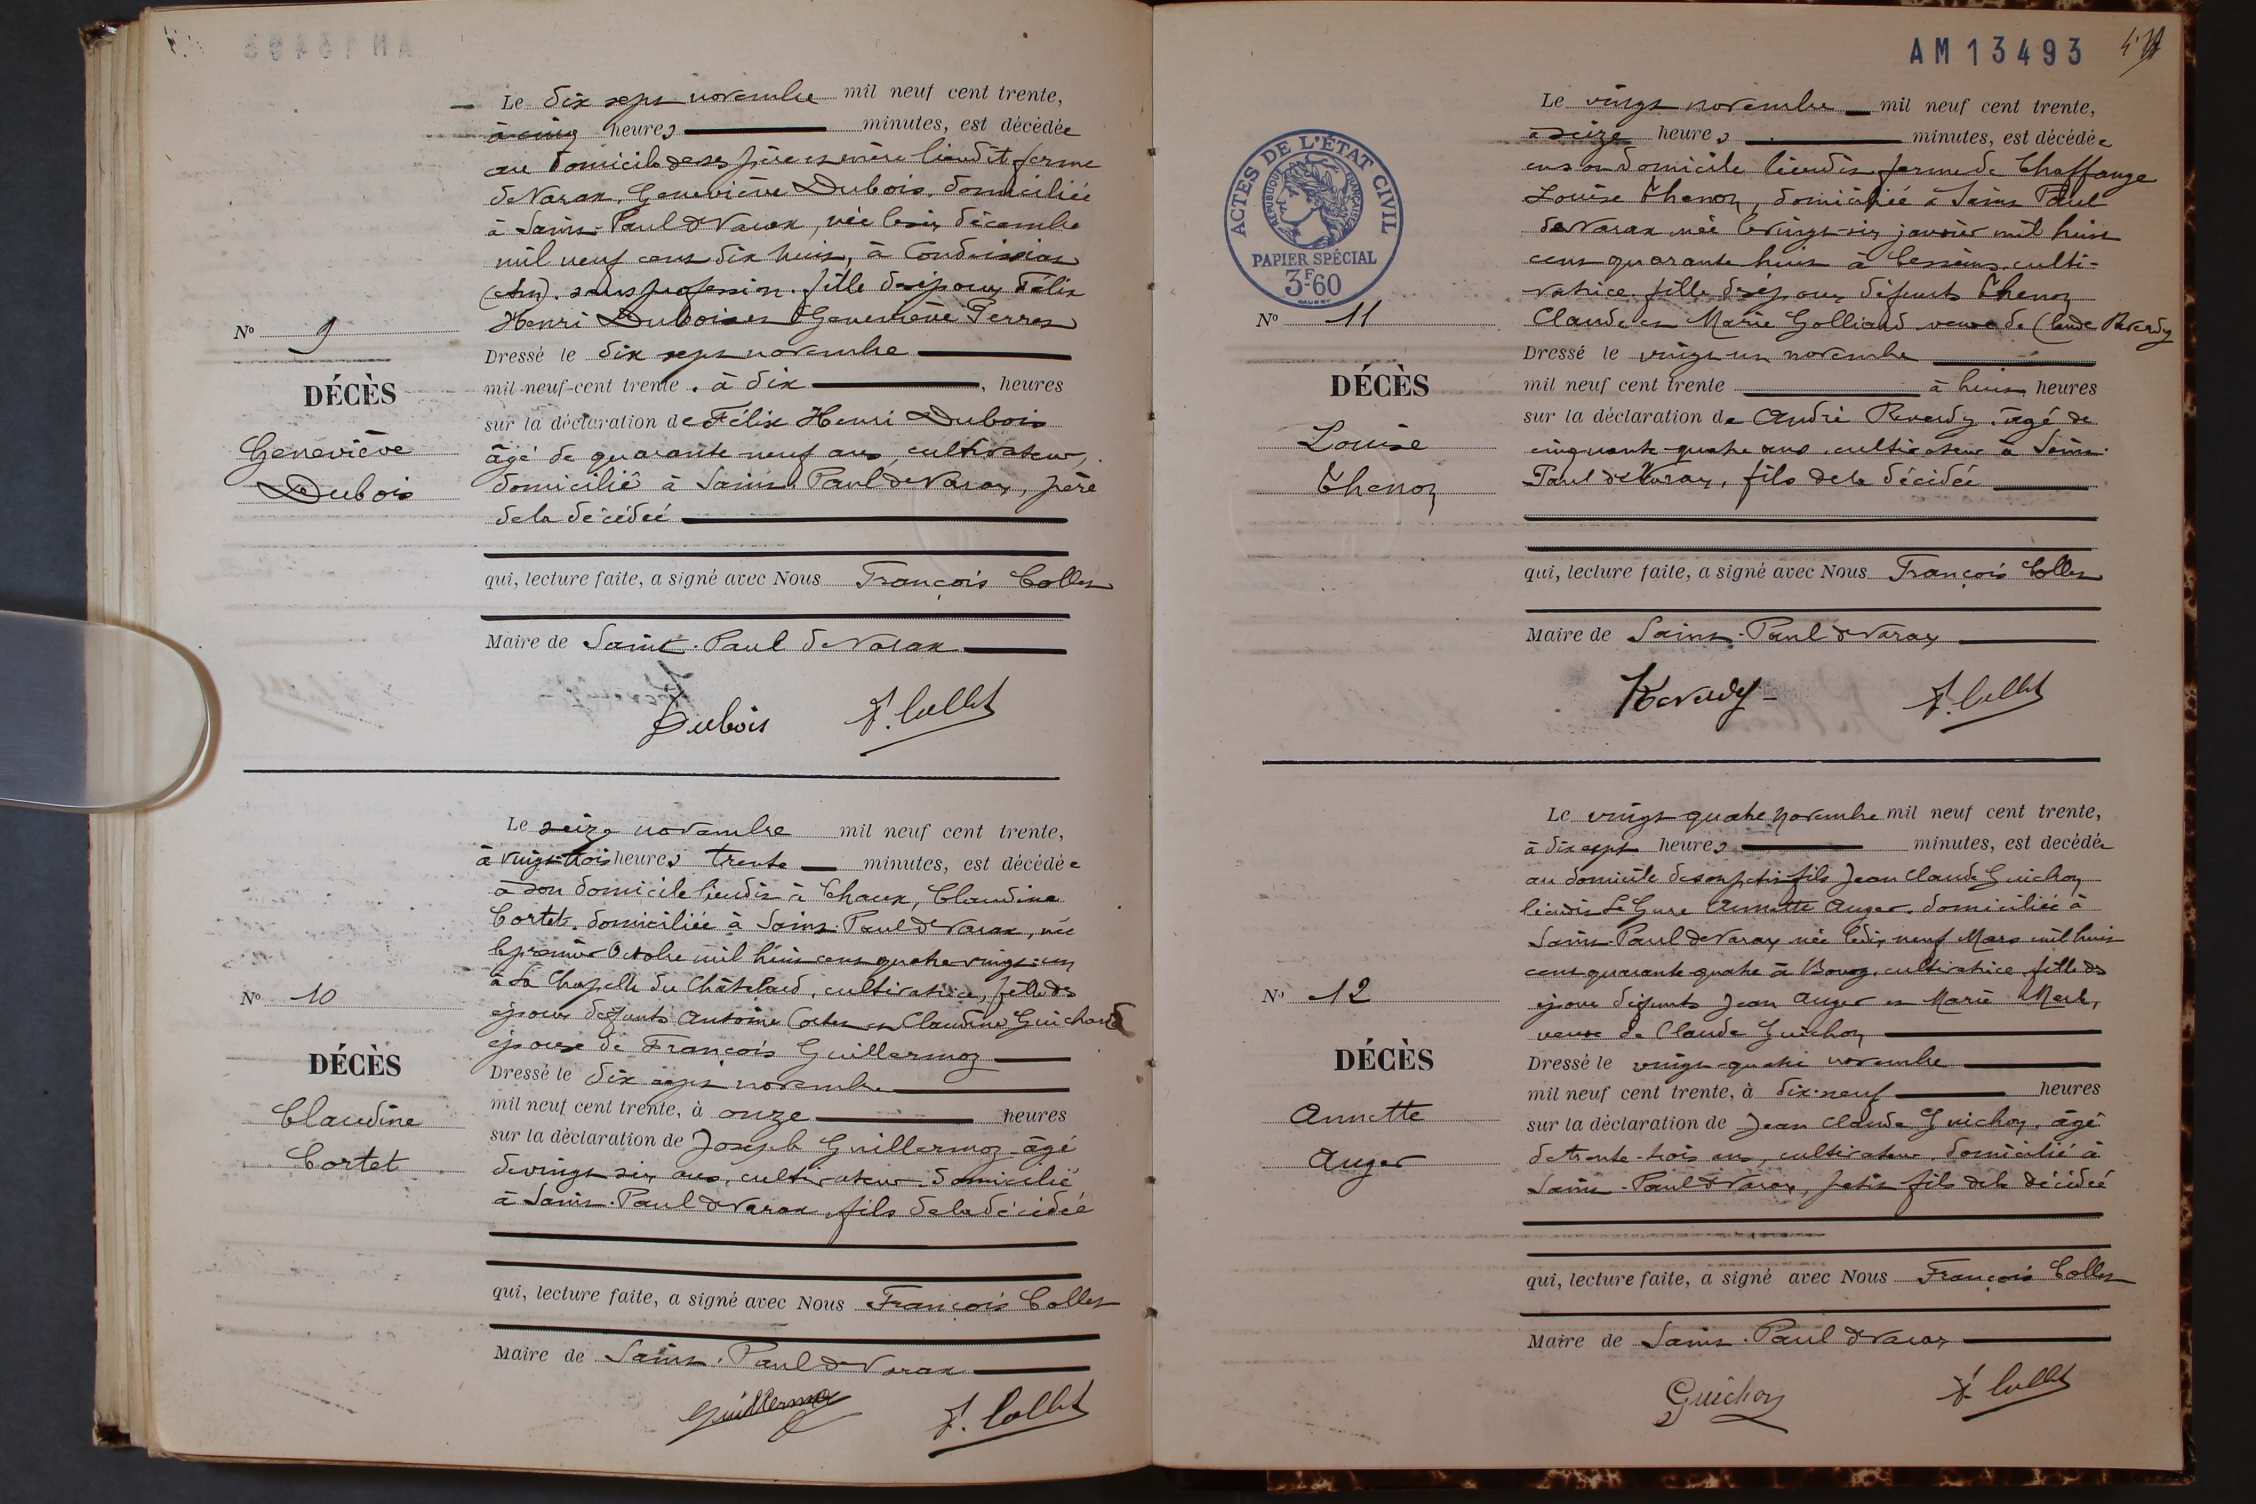 Le dix sept novembre mil neuf cent trente,
à cinq heures minutes, est décédée
au domicile de ses père et mère lieudit ferme
de Varax, Geneviève Dubois, domiciliée
à Saint-Paul de Varax, née le six décembre
mil neuf cent dix huit, à Condeissiat
(Ain). sans profession. fille des époux Félix
Henri Dubois et Geneviève Perret
N° 9
DÉCÈS
Geneviève
Dubois
Dressé le dix sept novembre
mil neuf cent trente, à dix heures
sur la déclaration de Félix Henri Dubois
âgé de quarante neuf ans, cultivateur,
domicilié à Saint Paul de Varax, père
de la décédée
qui, lecture faite, a signé avec Nous François Collet
Maire de Saint-Paul de Varax
Dubois F. Collet
Le seize novembre mil neuf cent trente,
à vingt-trois heures trente minutes, est décédée
à son domicile lieudit à Chaux, Claudine
Cortet, domiciliée à Saint-Paul de Varax, née
le premier Octobre mil huit cent quatre vingt-un
à La Chapelle du Châtelard, cultivatrice, fille des
époux défunts Antoine Cortet et Claudine Guichard
épouse de François Guillermoz
N° 10
DÉCÈS
Claudine
Cortet
Dressé le dix sept novembre
mil neuf cent trente, à onze heures
sur la déclaration de Joseph Guillermoz âgé
de vingt six ans, cultivateur domicilié
à Saint-Paul de Varax, fils de la décédée
qui, lecture faite, a signé avec Nous François Collet
Maire de Saint-Paul de Varax
Guillermoz F. Collet
AM 13493
ACTES DE L'ÉTAT CIVIL
RÉPUBLIQUE FRANÇAISE
PAPIER SPÉCIAL
3F60
Le vingt novembre mil neuf cent trente,
à seize heures minutes, est décédée
en son domicile lieudit ferme de Chaffange
Louise Thenoz, domiciliée à Saint Paul
de Varax née le vingt-six janvier mil huit
cent quarante huit à Lesseins, culti-
vatrice fille des époux défunts Thenoz
Claude et Marie Golliard veuve de Claude Reverdy
N° 11
DÉCÈS
Louise
Thenoz
Dressé le vingt un novembre
mil neuf cent trente à huit heures
sur la déclaration de André Reverdy âgé de
cinquante quatre ans, cultivateur à Saint
Paul de Varax, fils de la décédée
qui, lecture faite, a signé avec Nous François Collet
Maire de Saint-Paul de Varax
Reverdy F. Collet
Le vingt quatre novembre mil neuf cent trente,
à dix sept heures minutes, est décédée
au domicile de son petit fils Jean Claude Guichon
lieudit Le Gure Annette Auger, domiciliée à
Saint Paul de Varax née le dix neuf Mars mil huit
cent quarante quatre à Bourg, cultivatrice fille des
époux défunts Jean Auger et Marie Merle,
veuve de Claude Guichon
N° 12
DÉCÈS
Annette
Auger
Dressé le vingt-quatre novembre
mil neuf cent trente, à dix-neuf heures
sur la déclaration de Jean Claude Guichon, âgé
de trente-trois ans, cultivateur, domicilié à
Saint-Paul de Varax, petit fils de la décédée
qui, lecture faite, a signé avec Nous François Collet
Maire de Saint-Paul de Varax
Guichon F. Collet